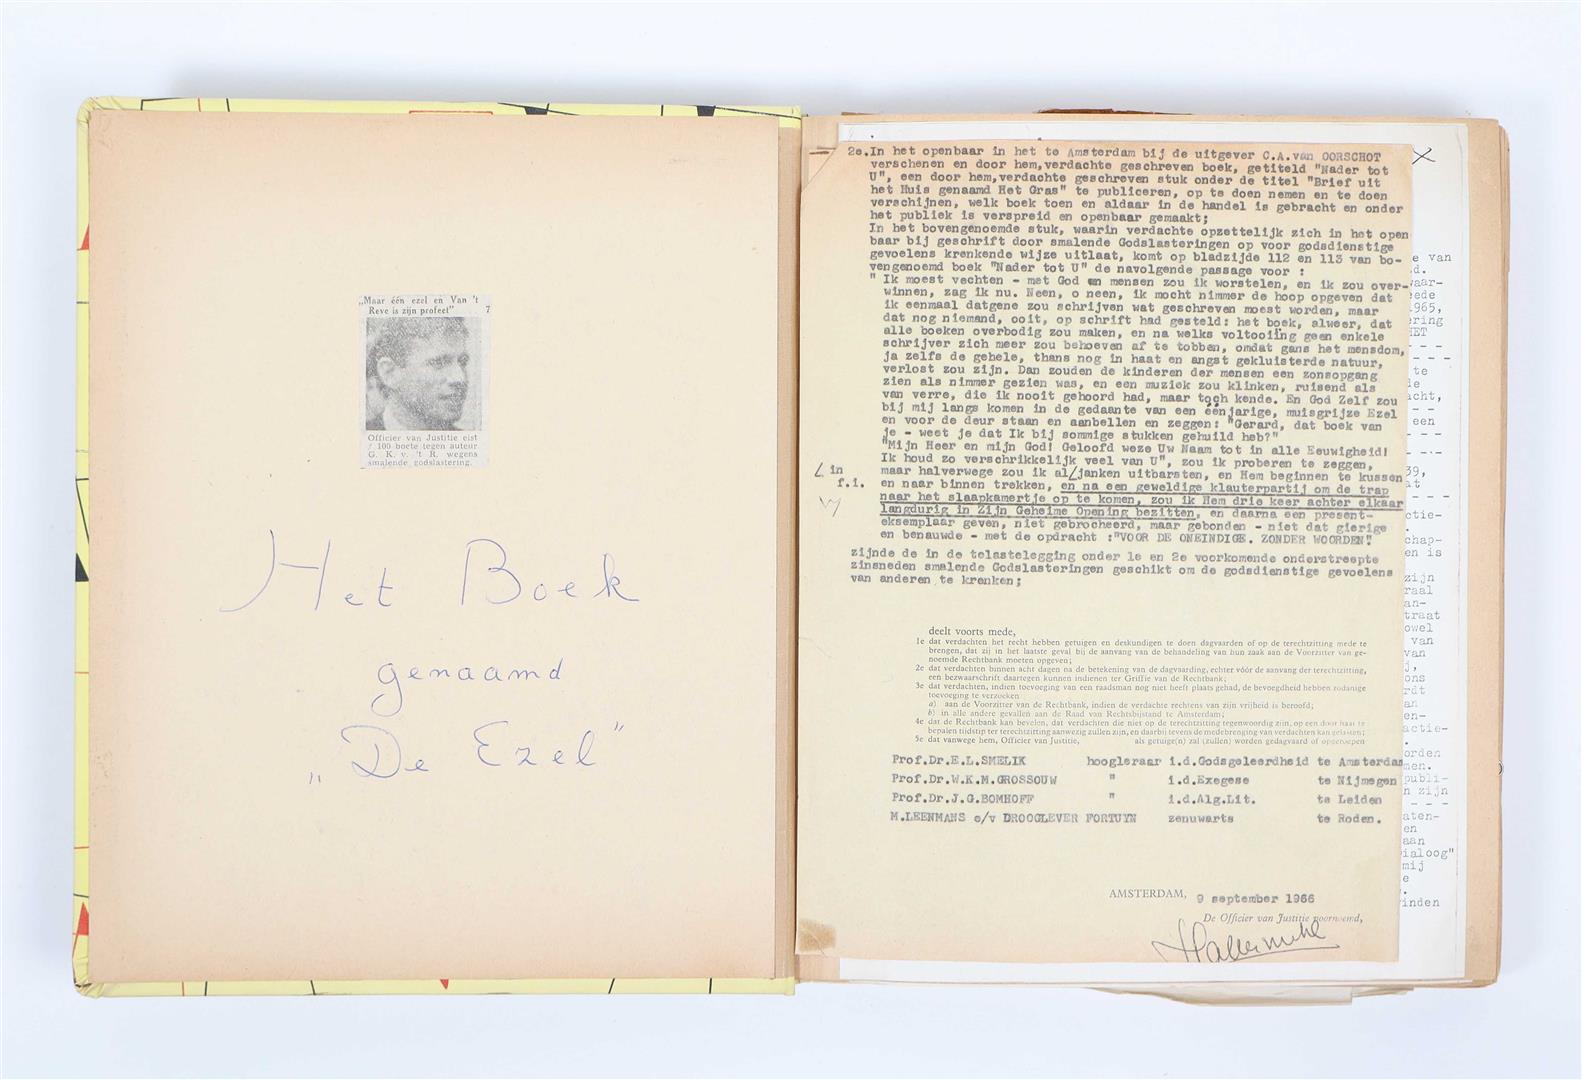 „Maar één ezel en Van 't
Reve is zijn profeet"
7
Officier van Justitie eist
f 100 boete tegen auteur
G. K. v. 't R. wegens
smalende godslastering.
Het Boek
genaamd
„De Ezel"
2e.In het openbaar in het te Amsterdam bij de uitgever C.A.van OORSCHOT
verschenen en door hem,verdachte geschreven boek, getiteld "Nader tot
U", een door hem,verdachte geschreven stuk onder de titel "Brief uit
het Huis genaamd Het Gras" te publiceren, op te doen nemen en te doen
verschijnen, welk boek toen en aldaar in de handel is gebracht en onder
het publiek is verspreid en openbaar gemaakt;
In het bovengenoemde stuk, waarin verdachte opzettelijk zich in het open
baar bij geschrift door smalende Godslasteringen op voor godsdienstige
gevoelens krenkende wijze uitlaat, komt op bladzijde 112 en 113 van bo-
vengenoemd boek "Nader tot U" de navolgende passage voor :
" Ik moest vechten - met God en mensen zou ik worstelen, en ik zou over-
winnen, zag ik nu. Neen, o neen, ik mocht nimmer de hoop opgeven dat
ik eenmaal datgene zou schrijven wat geschreven moest worden, maar
dat nog niemand, ooit, op schrift had gesteld: het boek, alweer, dat
alle boeken overbodig zou maken, en na welks voltooiing geen enkele
schrijver zich meer zou behoeven af te tobben, omdat gans het mensdom,
ja zelfs de gehele, thans nog in haat en angst gekluisterde natuur,
verlost zou zijn. Dan zouden de kinderen der mensen een zonsopgang
zien als nimmer gezien was, en een muziek zou klinken, ruisend als
van verre, die ik nooit gehoord had, maar toch kende. En God Zelf zou
bij mij langs komen in de gedaante van een éénjarige, muisgrijze Ezel
en voor de deur staan en aanbellen en zeggen: "Gerard, dat boek van
je - weet je dat Ik bij sommige stukken gehuild heb?"
"Mijn Heer en mijn God! Geloofd weze Uw Naam tot in alle Eeuwigheid!
Ik houd zo verschrikkelijk veel van U", zou ik proberen te zeggen,
maar halverwege zou ik al/janken uitbarsten, en Hem beginnen te kussen
L in
f.i.
en naar binnen trekken, en na een geweldige klauterpartij om de trap
naar het slaapkamertje op te komen, zou ik Hem drie keer achter elkaar
langdurig in Zijn Geheime Opening bezitten, en daarna een present-
eksemplaar geven, niet gebrocheerd, maar gebonden - niet dat gierige
en benauwde - met de opdracht :"VOOR DE ONEINDIGE. ZONDER WOORDEN"
zijnde de in de telastelegging onder 1e en 2e voorkomende onderstreepte
zinsneden smalende Godslasteringen geschikt om de godsdienstige gevoelens
van anderen te krenken;
deelt voorts mede,
1e dat verdachten het recht hebben getuigen en deskundigen te doen dagvaarden of op de terechtzitting mede te
brengen, dat zij in het laatste geval bij de aanvang van de behandeling van hun zaak aan de Voorzitter van ge-
noemde Rechtbank moeten opgeven;
2e dat verdachten binnen acht dagen na de betekening van de dagvaarding, echter vóór de aanvang der terechtzitting,
een bezwaarschrift daartegen kunnen indienen ter Griffie van de Rechtbank;
3e dat verdachten, indien toevoeging van een raadsman nog niet heeft plaats gehad, de bevoegdheid hebben zodanige
toevoeging te verzoeken
a) aan de Voorzitter van de Rechtbank, indien de verdachte rechtens van zijn vrijheid is beroofd;
b) in alle andere gevallen aan de Raad van Rechtsbijstand te Amsterdam;
4e dat de Rechtbank kan bevelen, dat verdachten die niet op de terechtzitting tegenwoordig zijn, op een door haar te
bepalen tijdstip ter terechtzitting aanwezig zullen zijn, en daarbij tevens de medebrenging van verdachten kan gelasten;
5e dat vanwege hem, Officier van Justitie, als getuige(n) zal (zullen) worden gedagvaard of opgeroepen
Prof.Dr.E.L.SMELIK hoogleraar i.d.Godsgeleerdheid te Amsterdam
Prof.Dr.W.K.M.GROSSOUW " i.d.Exegese te Nijmegen
Prof.Dr.J.G.BOMHOFF " i.d.Alg.Lit. te Leiden
M.LEENMANS e/v DROOGLEVER FORTUYN zenuwarts te Roden.
AMSTERDAM, 9 september 1966
De Officier van Justitie voornoemd,
e van
d.
aar-
ede
965,
ering
ET
te
de
acht,
een
39,
at
ctie-
chap-
en is
zijn
raal
an-
traat
owel
van
van
j,
ons
rdt
an
en-
actie-
orden
men.
publi-
n zijn
aten-
en
aan
ialoog"
mij
e
inden